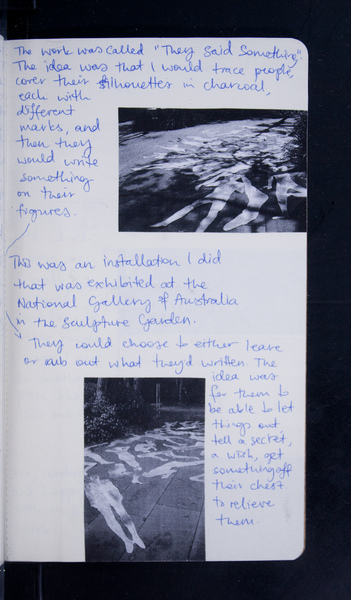 The work was called "They Said Something".
The idea was that I would trace people,
cover their silhouettes in charcoal,
each with
different
marks, and
then they
would write
something
on their
figures.
This was an installation I did
that was exhibited at the
National Gallery of Australia
in the Sculpture Garden.
They could choose to either leave
or rub out what they'd written. The
idea was
for them to
be able to let
things out,
tell a secret,
a wish, get
something off
their chest
to relieve
them.